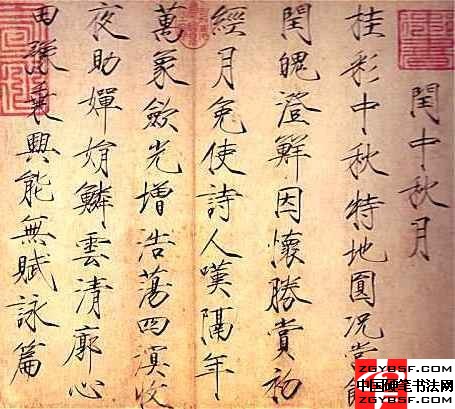 閏中秋月
桂彩中秋特地圓況當餘
閏魄澄鮮因懷勝賞初
經月免使詩人嘆隔年
萬象斂光增浩蕩四溟收
夜助嬋娟鱗雲清廓心
田豫乘興能無賦詠篇
ZGYBSF.COM
中国硬笔书法网
ZGYBSF.COM